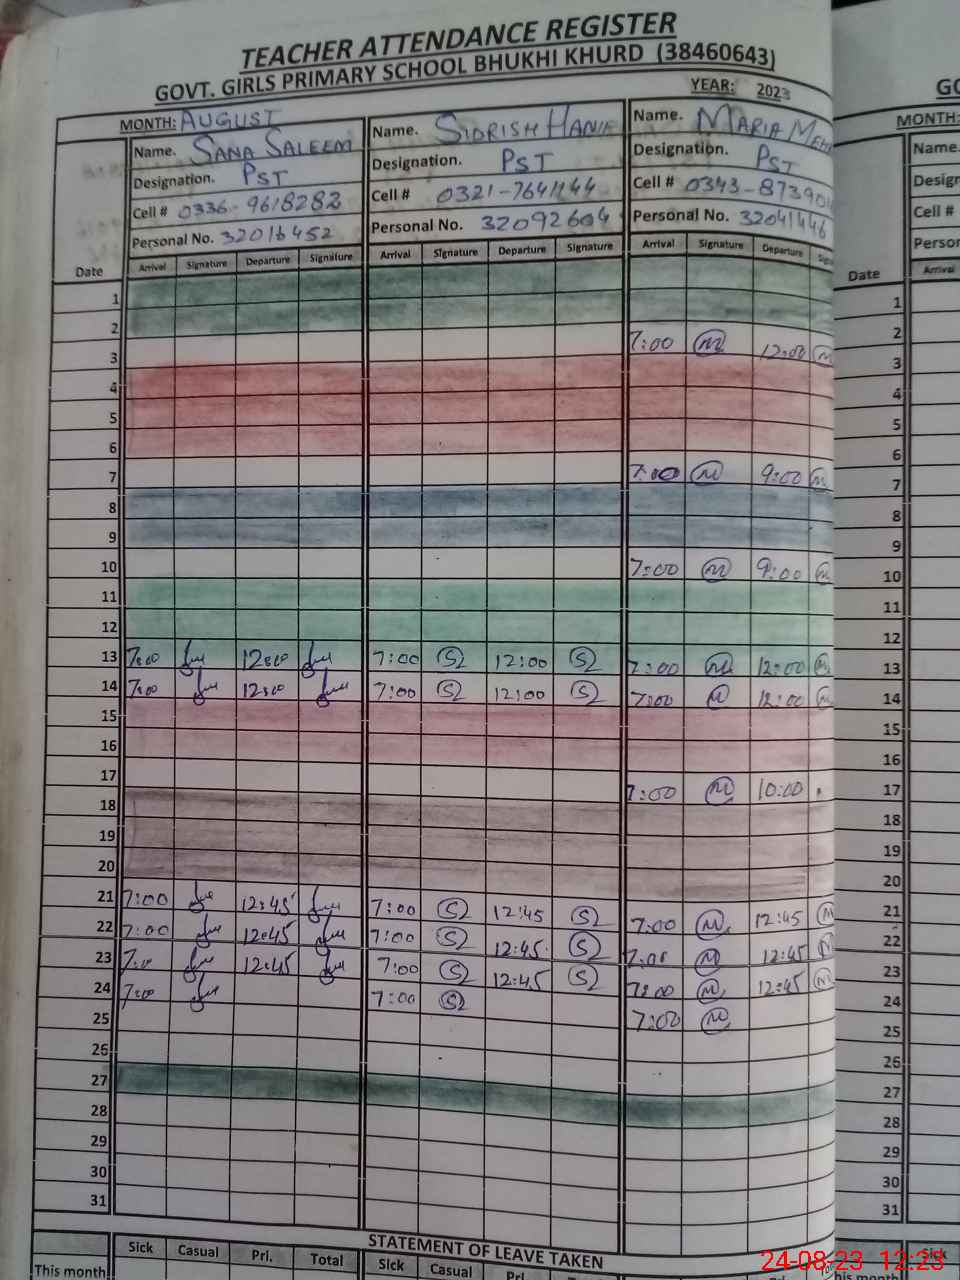 TEACHER ATTENDANCE REGISTER
GOVT. GIRLS PRIMARY SCHOOL BHUKHI KHURD (38460643)
YEAR: 2023
MONTH: AUGUST
Name. SANA SALEEM Name. SIDRISH Name. MARIA
Designation. PST Designation. PST Designation. PST
Cell # 0336-9618282 Cell # 0321-7641144 Cell # 0343-87390
Personal No. 32016452 Personal No. 32092604 Personal No. 32041446
Date Arrival Signature Departure Signature Arrival Signature Departure Signature Arrival Signature Departure
1
2
3 7:00 M 12:00 M
4
5
6
7 7:00 M 9:00 M
8
9
10 7:00 M 9:00 M
11
12
13 7:00 12:00 7:00 S 12:00 S 7:00 M 12:00 M
14 7:00 12:00 7:00 S 12:00 S 7:00 M 12:00 M
15
16
17 7:00 M 10:00
18
19
20
21 7:00 12:45 7:00 S 12:45 S 7:00 M 12:45 M
22 7:00 12:45 7:00 S 12:45 S 7:00 M 12:45 M
23 7:0 12:45 7:00 S 12:45 S 7:00 M 12:45 M
24 7:00 7:00 S 7:00 M
25
26
27
28
29
30
31
STATEMENT OF LEAVE TAKEN
Sick Casual Pri. Total Sick Casual Pri.
This month
MONTH:
Name.
Cell #
Date Arrival
1
2
3
4
5
6
7
8
9
10
11
12
13
14
15
16
17
18
19
20
21
22
23
24
25
26
27
28
29
30
31
Sick
This month
24-08-23 12:23